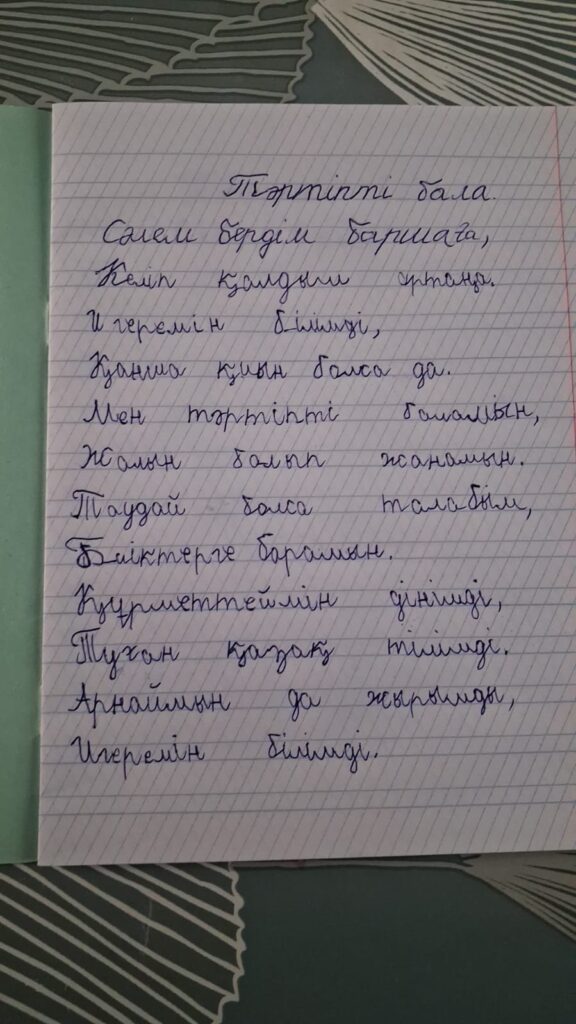 Тәртіпті бала.
Сәлем бердім баршаға,
Келіп қалдым ортаңа.
Игеремін білімді,
Қанша қиын болса да.
Мен тәртіпті баламын,
Жалын болып жанамын.
Таудай болса талабым,
Биіктерге барамын.
Құрметтеймін дінімді,
Туған қазақ тілімді.
Арнаймын да жырымды,
Игеремін білімді.